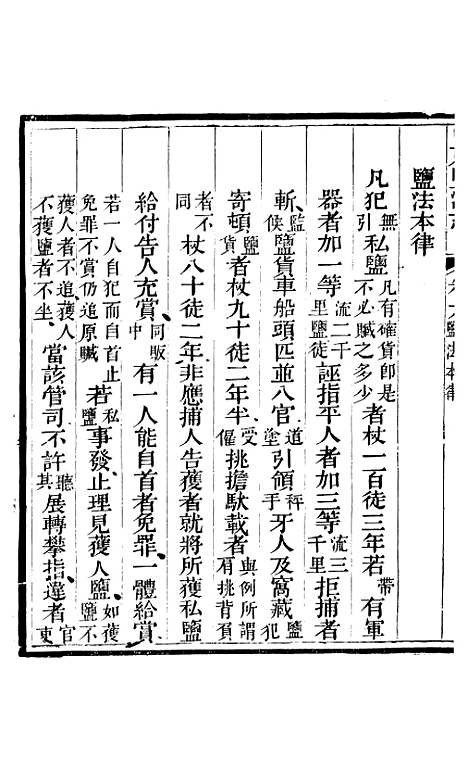 鹽法本律
凡犯無引私鹽凡有確貨即是不必贓之多少者杖一百徒三年若帶有軍
器者加一等流二千里鹽徒誣指平人者加三等流三千里拒捕者
斬監候鹽貨車船頭匹並入官道塗引領秤手牙人及窩藏鹽犯
寄頓鹽貨者杖九十徒二年半受僱挑擔馱載者與例所謂有挑背負
者不同杖八十徒二年非應捕人告獲者就將所獲私鹽
給付告人充賞同販中有一人能自首者免罪一體給賞
若一人自犯而自首止免罪不賞仍追原贓若私鹽事發止理見獲人鹽如獲鹽不
獲人者不追獲人不獲鹽者不坐當該官司不許聽其展轉攀指違者官吏